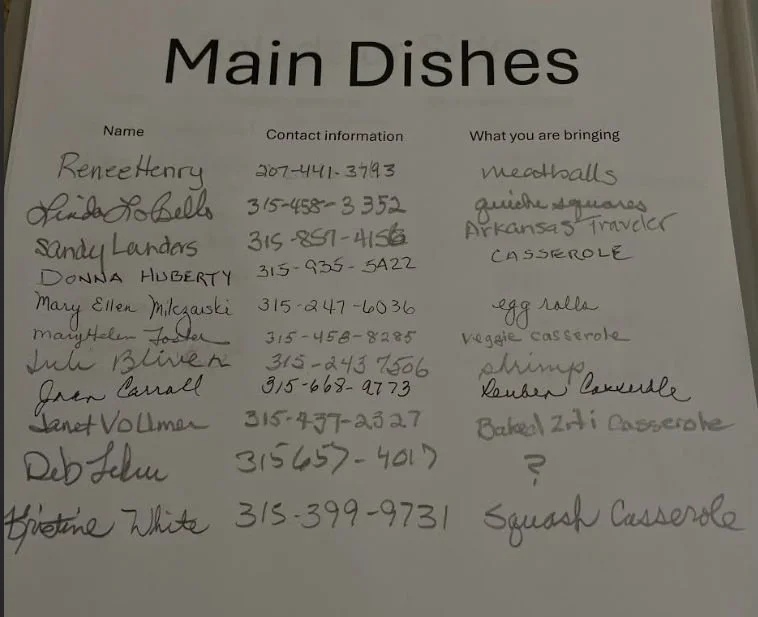 Main Dishes
Name Contact information What you are bringing
Renee Henry 207-441-3793 meatballs
Linda LoBello 315-458-3352 quiche squares
Sandy Landers 315-857-4156 Arkansas Traveler
DONNA HUBERTY 315-935-5422 CASSEROLE
Mary Ellen Milczarski 315-247-6036 egg rolls
Mary Helen Foster 315-458-8285 veggie casserole
Juli Bliven 315-243 7506 shrimp
Joan Carroll 315-668-9773 Reuben Casserole
Janet Vollmer 315-437-2327 Baked Ziti Casserole
Deb 315657-4017 ?
Kristine White 315-399-9731 Squash Casserole